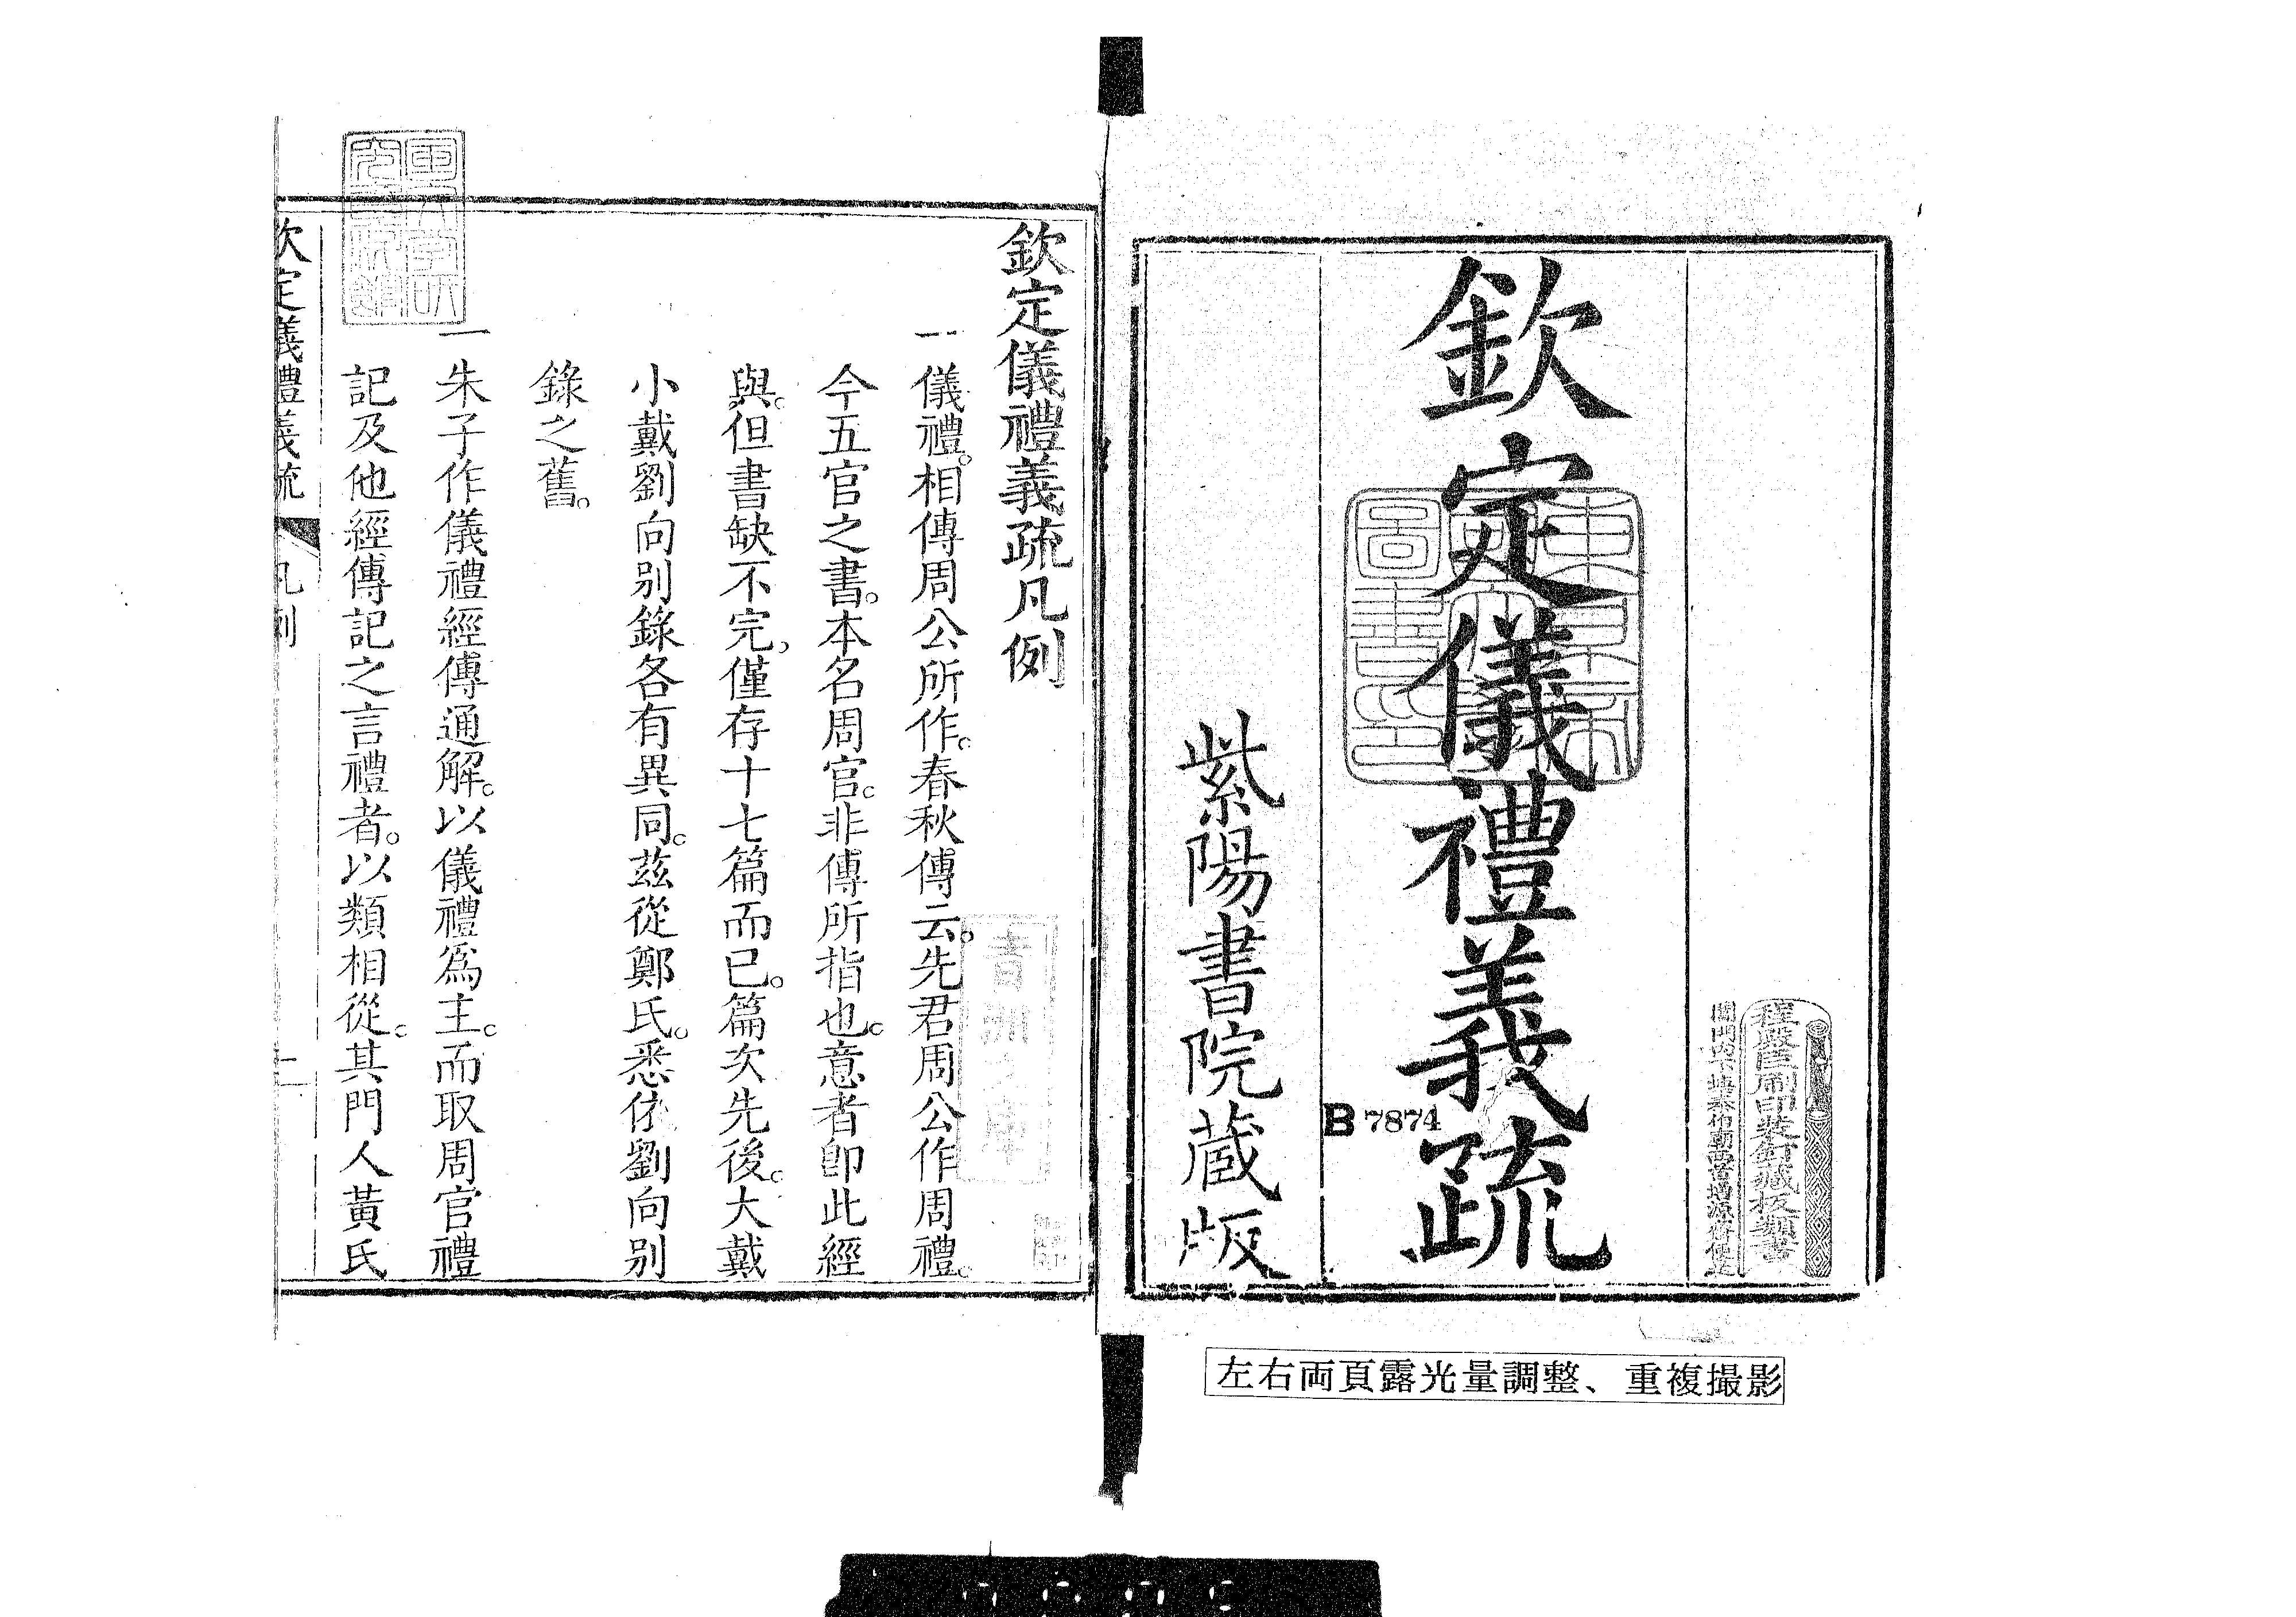 欽定儀禮義疏
紫陽書院蔵版
B 7874
左右両頁露光量調整、重複撮影
欽定儀禮義疏凡例
一儀禮。相傳周公所作。春秋傳云。先君周公作周禮。
今五官之書。本名周官。非傳所指也。意者卽此經
與。但書缺不完，僅存十七篇而已。篇次先後。大戴
小戴劉向別錄各有異同。茲從鄭氏。悉依劉向別
錄之舊。
一朱子作儀禮經傳通解。以儀禮爲主。而取周官禮
記及他經傳記之言禮者。以類相從。其門人黃氏
欽定儀禮義疏 凡例